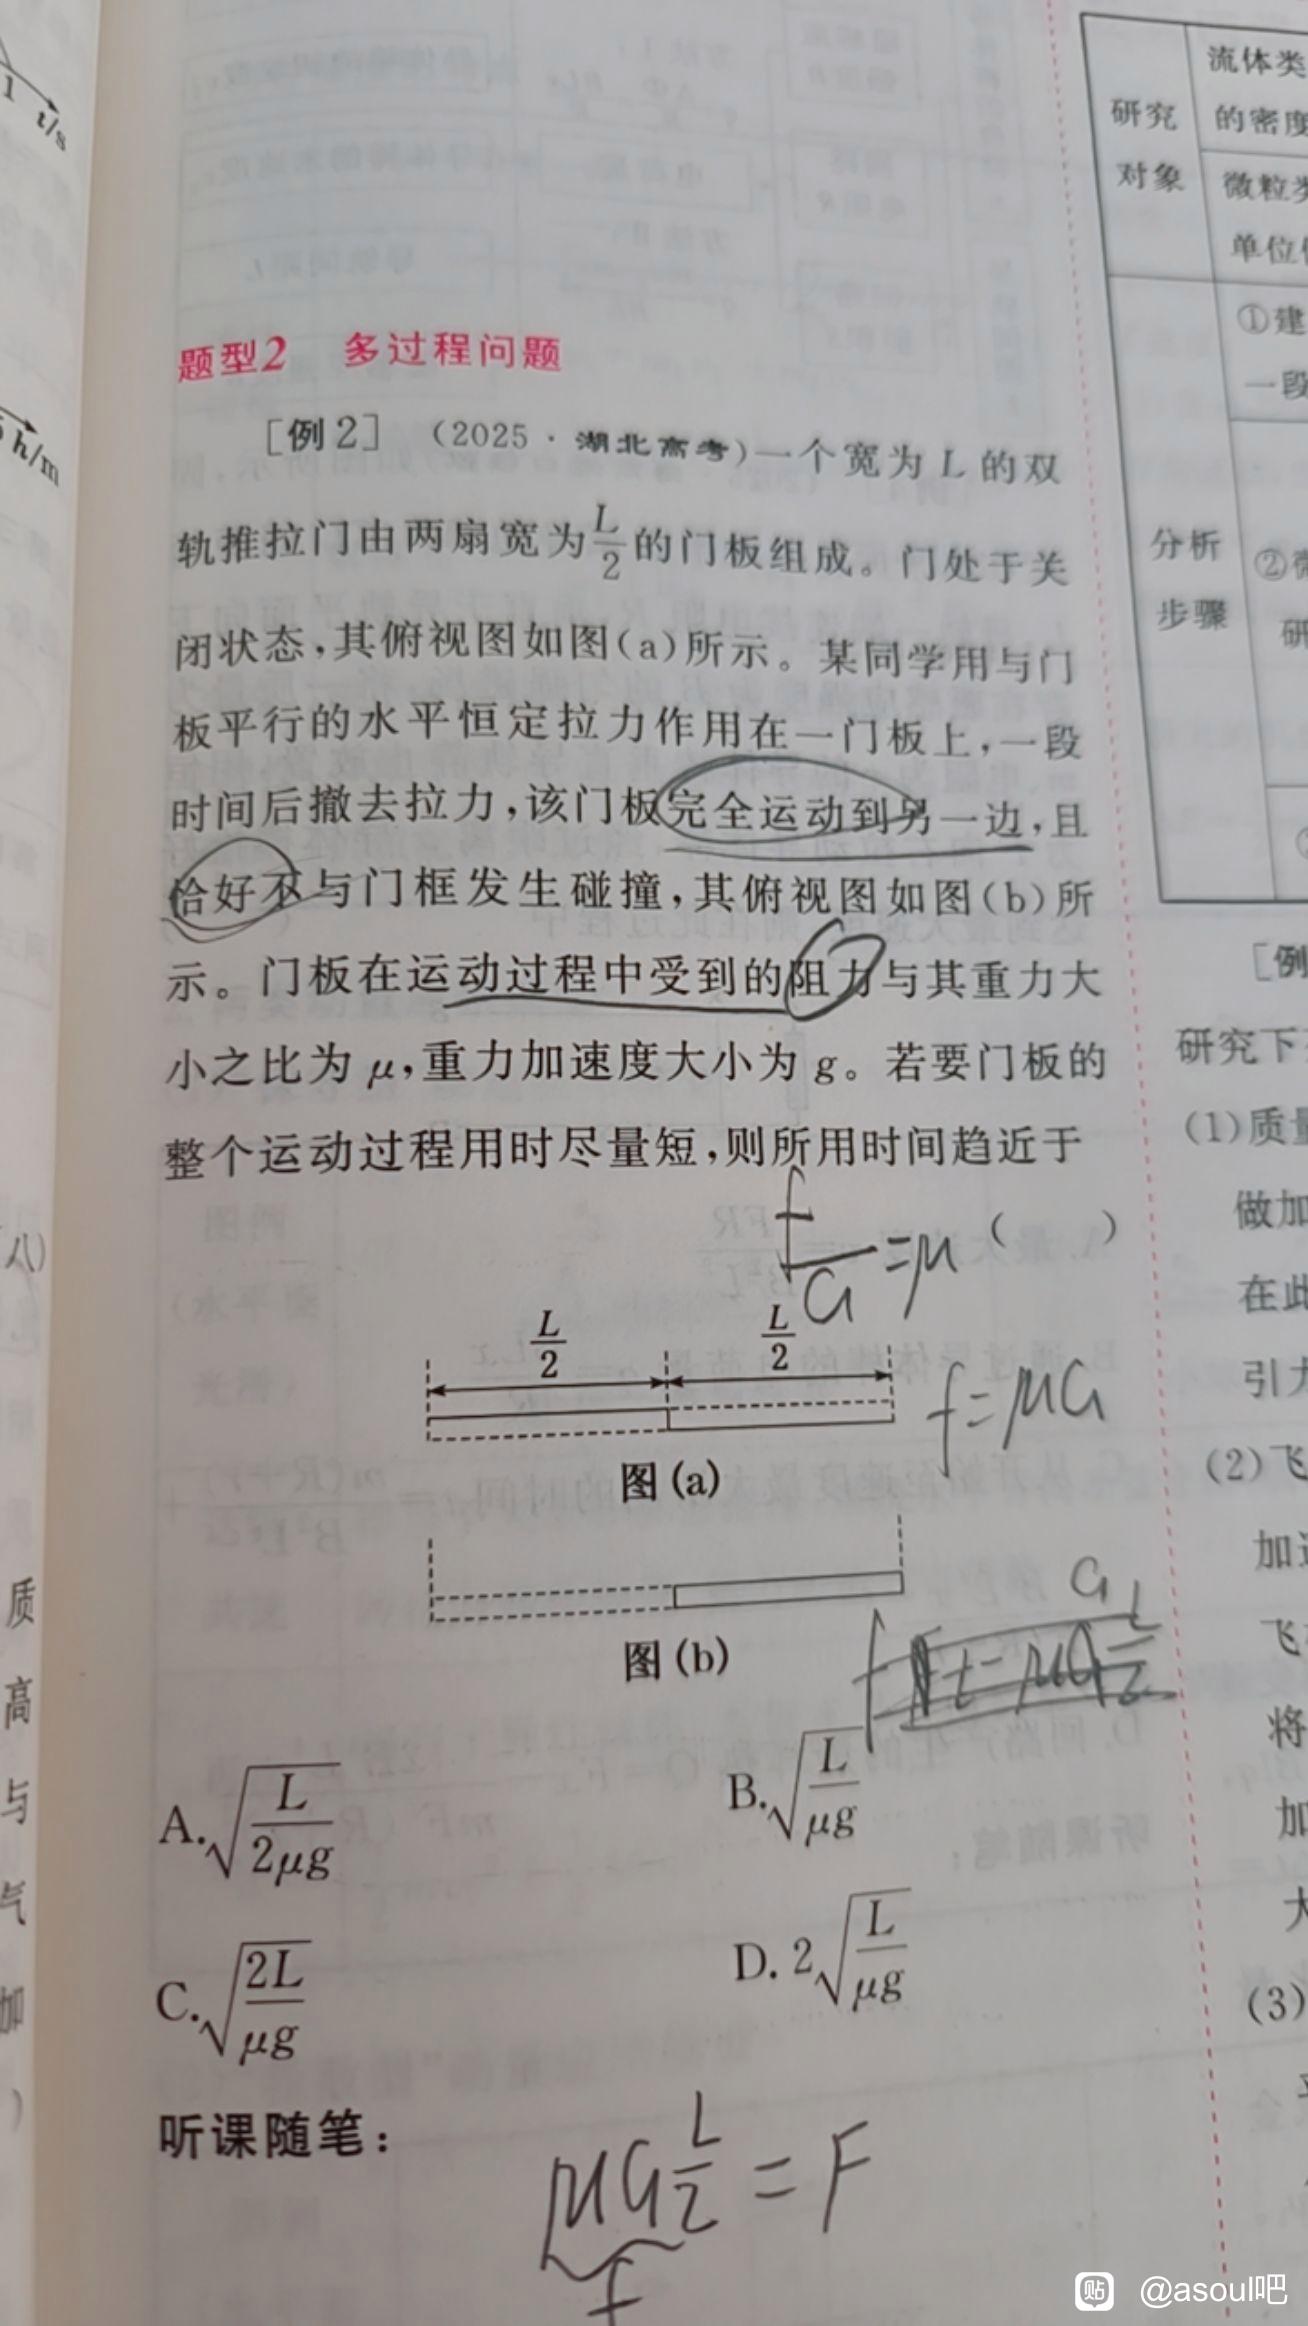 1 t/s
h/m
八)
质
高
与
气
加
)
题型2 多过程问题
[例2] (2025·湖北高考)一个宽为 L 的双
轨推拉门由两扇宽为 L/2 的门板组成。门处于关
闭状态,其俯视图如图(a)所示。某同学用与门
板平行的水平恒定拉力作用在一门板上,一段
时间后撤去拉力,该门板完全运动到另一边,且
恰好不与门框发生碰撞,其俯视图如图(b)所
示。门板在运动过程中受到的阻力与其重力大
小之比为 μ,重力加速度大小为 g。若要门板的
整个运动过程用时尽量短,则所用时间趋近于
( )
f/G = μ
L/2 L/2
f = μG
图(a)
图(b)
G
A. √(L/(2μg)) B. √(L/(μg))
C. √(2L/(μg)) D. 2√(L/(μg))
听课随笔:
μG L/2 = F
f
研究
对象
流体类
的密度
微粒类
单位体
分析
步骤
①建
一段
②微
研
[例
研究下
(1)质量
做加
在此
引力
(2)飞
加速
飞
将
加
大
(3)
贴 @asoul吧